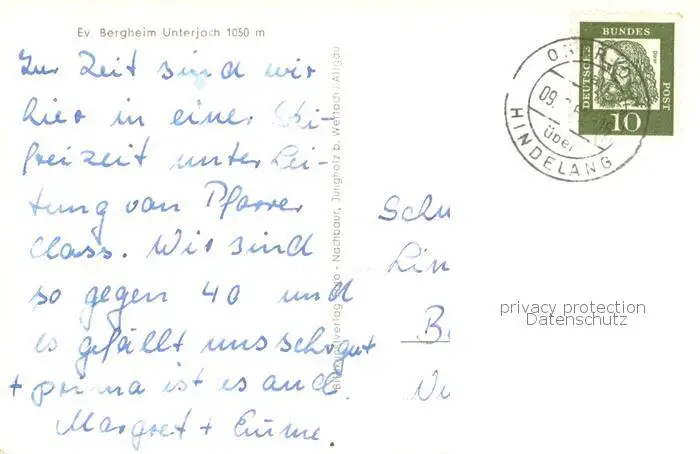 Ev. Bergheim Unterjoch 1050 m
Zur Zeit sind wir
hier in einer Ski-
freizeit unter Lei-
tung von Pfarrer
Class. Wir sind
so gegen 40 und
es gefällt uns sehr gut
+ prima ist es auch.
Margret +
Nachbaur, Jungholz b. Wertach/Allgäu
DEUTSCHE
BUNDES
POST
Dürer
10
09.
über
HINDELANG
Schu
Lin
B
privacy protection
Datenschutz